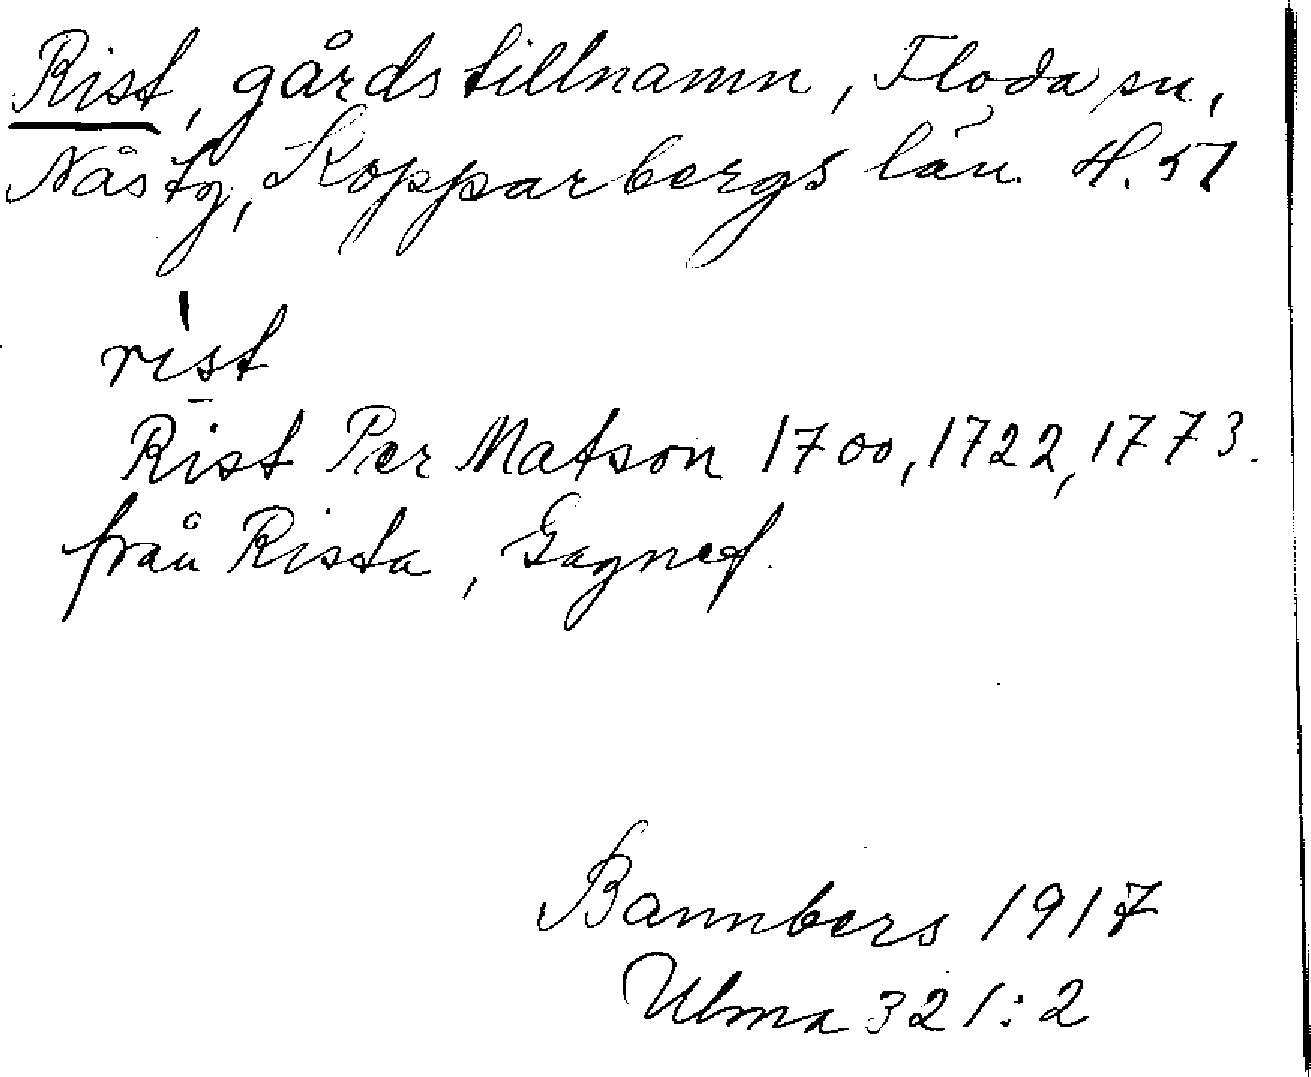 Rist, gårdstillnamn, Floda sn,
Nås tg, Kopparbergs län. H. 51
rist
Rist Per Matson 1700, 1722, 1773.
från Rista, Gagnef.
Bannbers 1917
Ulma 321:2